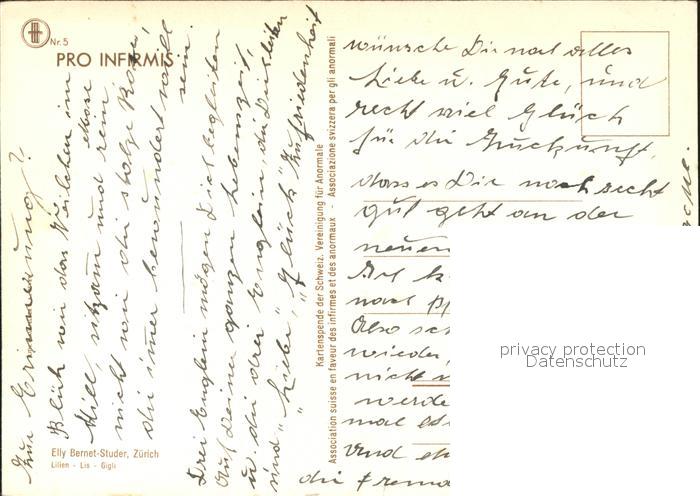 Nr. 5
PRO INFIRMIS
Zur Erinnerung?
Blüh wie das Veilchen im Moose
Still, sitzam und rein
nicht wie die stolze Rose,
die imer bewundert will
sein.
Drei Englein mögen Dich begleiten
Auf Deiner ganzen Lebenszeit,
u. die drei Englein, die Dich leiten
sind „Liebe", „Glück" Zufriedenheit
Elly Bernet-Studer, Zürich
Lilien - Lis - Gigli
Kartenspende der Schweiz. Vereinigung für Anormale
Association suisse en faveur des infirmes et des anormaux - Associazione svizzera per gli anormali
wünsche Dir nal alles
Liebe u. Gute, und
recht viel Glück
für die
dass es Dir noch recht
gut geht an der
neuen
Also
wieder,
nicht
werde
mal
und
die
privacy protection
Datenschutz